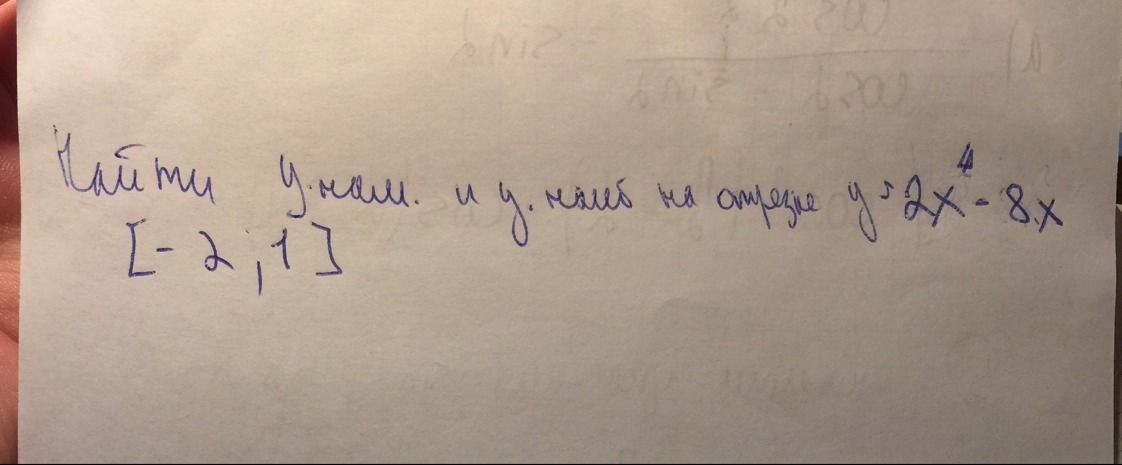 Найти y.наим. и y.наиб на отрезке y = 2x⁴ - 8x
[-2, 1]